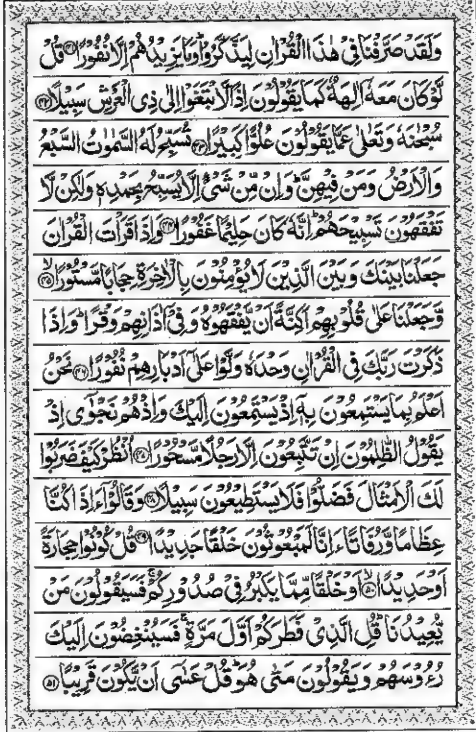 وَلَقَدۡ صَرَّفۡنَا فِىۡ هٰذَا الۡقُرۡاٰنِ لِيَذَّكَّرُوۡا ؕ وَمَا يَزِيۡدُهُمۡ اِلَّا نُفُوۡرًا ﴿۴۱﴾ قُلْ
لَّوۡ كَانَ مَعَهٗۤ اٰلِهَةٌ كَمَا يَقُوۡلُوۡنَ اِذًا لَّابۡتَغَوۡا اِلٰى ذِى الۡعَرۡشِ سَبِيۡلًا ﴿۴۲﴾
سُبۡحٰنَهٗ وَتَعٰلٰى عَمَّا يَقُوۡلُوۡنَ عُلُوًّا كَبِيۡرًا ﴿۴۳﴾ تُسَبِّحُ لَهُ السَّمٰوٰتُ السَّبۡعُ
وَالۡاَرۡضُ وَمَنۡ فِيۡهِنَّ ؕ وَاِنۡ مِّنۡ شَىۡءٍ اِلَّا يُسَبِّحُ بِحَمۡدِهٖ وَلٰكِنۡ لَّا
تَفۡقَهُوۡنَ تَسۡبِيۡحَهُمۡ ؕ اِنَّهٗ كَانَ حَلِيۡمًا غَفُوۡرًا ﴿۴۴﴾ وَاِذَا قَرَاۡتَ الۡقُرۡاٰنَ
جَعَلۡنَا بَيۡنَكَ وَبَيۡنَ الَّذِيۡنَ لَا يُؤۡمِنُوۡنَ بِالۡاٰخِرَةِ حِجَابًا مَّسۡتُوۡرًا ۙ ﴿۴۵﴾
وَّجَعَلۡنَا عَلٰى قُلُوۡبِهِمۡ اَكِنَّةً اَنۡ يَّفۡقَهُوۡهُ وَفِىۡۤ اٰذَانِهِمۡ وَقۡرًا ؕ وَاِذَا
ذَكَرۡتَ رَبَّكَ فِى الۡقُرۡاٰنِ وَحۡدَهٗ وَلَّوۡا عَلٰٓى اَدۡبَارِهِمۡ نُفُوۡرًا ﴿۴۶﴾ نَحۡنُ
اَعۡلَمُ بِمَا يَسۡتَمِعُوۡنَ بِهٖۤ اِذۡ يَسۡتَمِعُوۡنَ اِلَيۡكَ وَاِذۡ هُمۡ نَجۡوٰٓى اِذۡ
يَقُوۡلُ الظّٰلِمُوۡنَ اِنۡ تَتَّبِعُوۡنَ اِلَّا رَجُلًا مَّسۡحُوۡرًا ﴿۴۷﴾ اُنْظُرۡ كَيۡفَ ضَرَبُوۡا
لَكَ الۡاَمۡثَالَ فَضَلُّوۡا فَلَا يَسۡتَطِيۡعُوۡنَ سَبِيۡلًا ﴿۴۸﴾ وَقَالُوۡۤا ءَاِذَا كُنَّا
عِظَامًا وَّرُفَاتًا ءَاِنَّا لَمَبۡعُوۡثُوۡنَ خَلۡقًا جَدِيۡدًا ﴿۴۹﴾ قُلۡ كُوۡنُوۡا حِجَارَةً
اَوۡ حَدِيۡدًا ۙ ﴿۵۰﴾ اَوۡ خَلۡقًا مِّمَّا يَكۡبُرُ فِىۡ صُدُوۡرِكُمۡ ۚ فَسَيَقُوۡلُوۡنَ مَنۡ
يُّعِيۡدُنَا ؕ قُلِ الَّذِىۡ فَطَرَكُمۡ اَوَّلَ مَرَّةٍ ۚ فَسَيُنۡغِضُوۡنَ اِلَيۡكَ
رُءُوۡسَهُمۡ وَيَقُوۡلُوۡنَ مَتٰى هُوَ ؕ قُلۡ عَسٰٓى اَنۡ يَّكُوۡنَ قَرِيۡبًا ﴿۵۱﴾